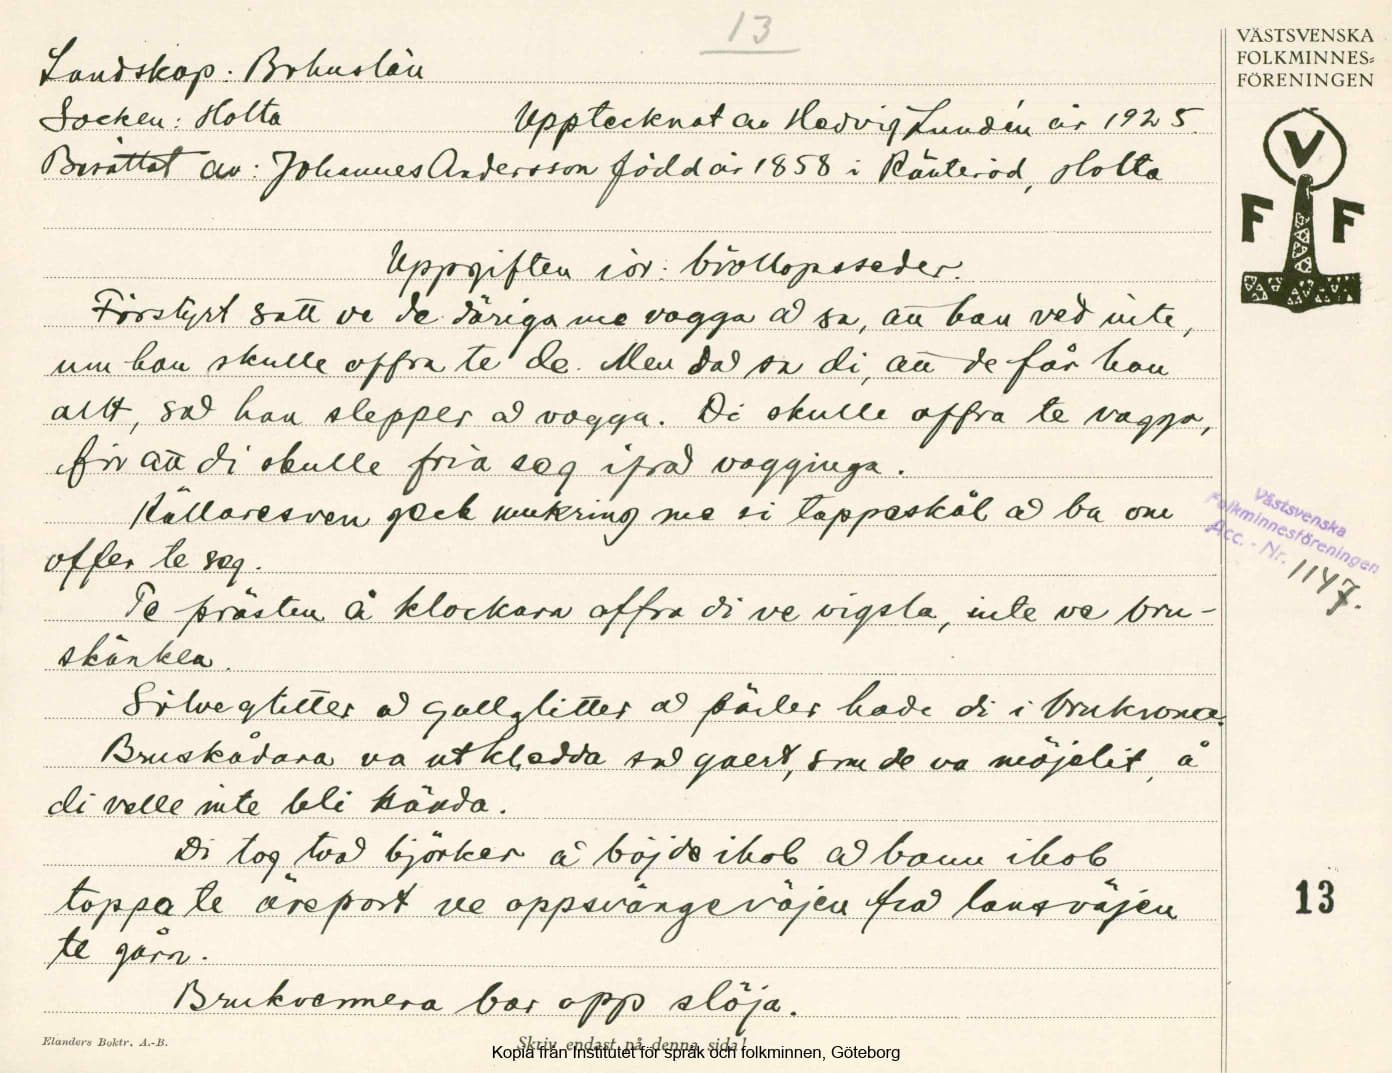 13
VÄSTSVENSKA
FOLKMINNES-
FÖRENINGEN
V
F F
Landskap: Bohuslän
Socken: Holta Upptecknat av Hedvig Lundén år 1925.
Berättat av: Johannes Andersson född år 1858 i Ränteröd, Holta
Uppgiften rör: bröllopsseder.
Förstyrt satt ve de däriga me vagga å sa, att han ved inte,
um han skulle offra te de. Men då sa di, att de får han
allt, så han slepper å vagga. Di skulle offra te vagga,
för att di skulle fria seg ifrå vagginga.
Källaresven geck umkring me si tappeskål å ba om
offer te seg.
Te prästen å klockarn offra di ve vigsla, inte ve bru-
skänken.
Sölveglitter å gullglitter å pärler hade di i brukrona.
Bruskådara va utklädda så gaert, som de va möjelit, å
di velle inte bli kända.
Di tog två björker å böjde ihob å bann ihob
toppa te äreport ve oppsvängeväjen frå lansväjen
te gårn.
Brukvennera bar opp slöja.
Västsvenska
Folkminnesföreningen
Acc. - Nr. 1147.
13
Elanders Boktr. A.-B.
Skriv endast på denna sida!
Kopia från Institutet för språk och folkminnen, Göteborg